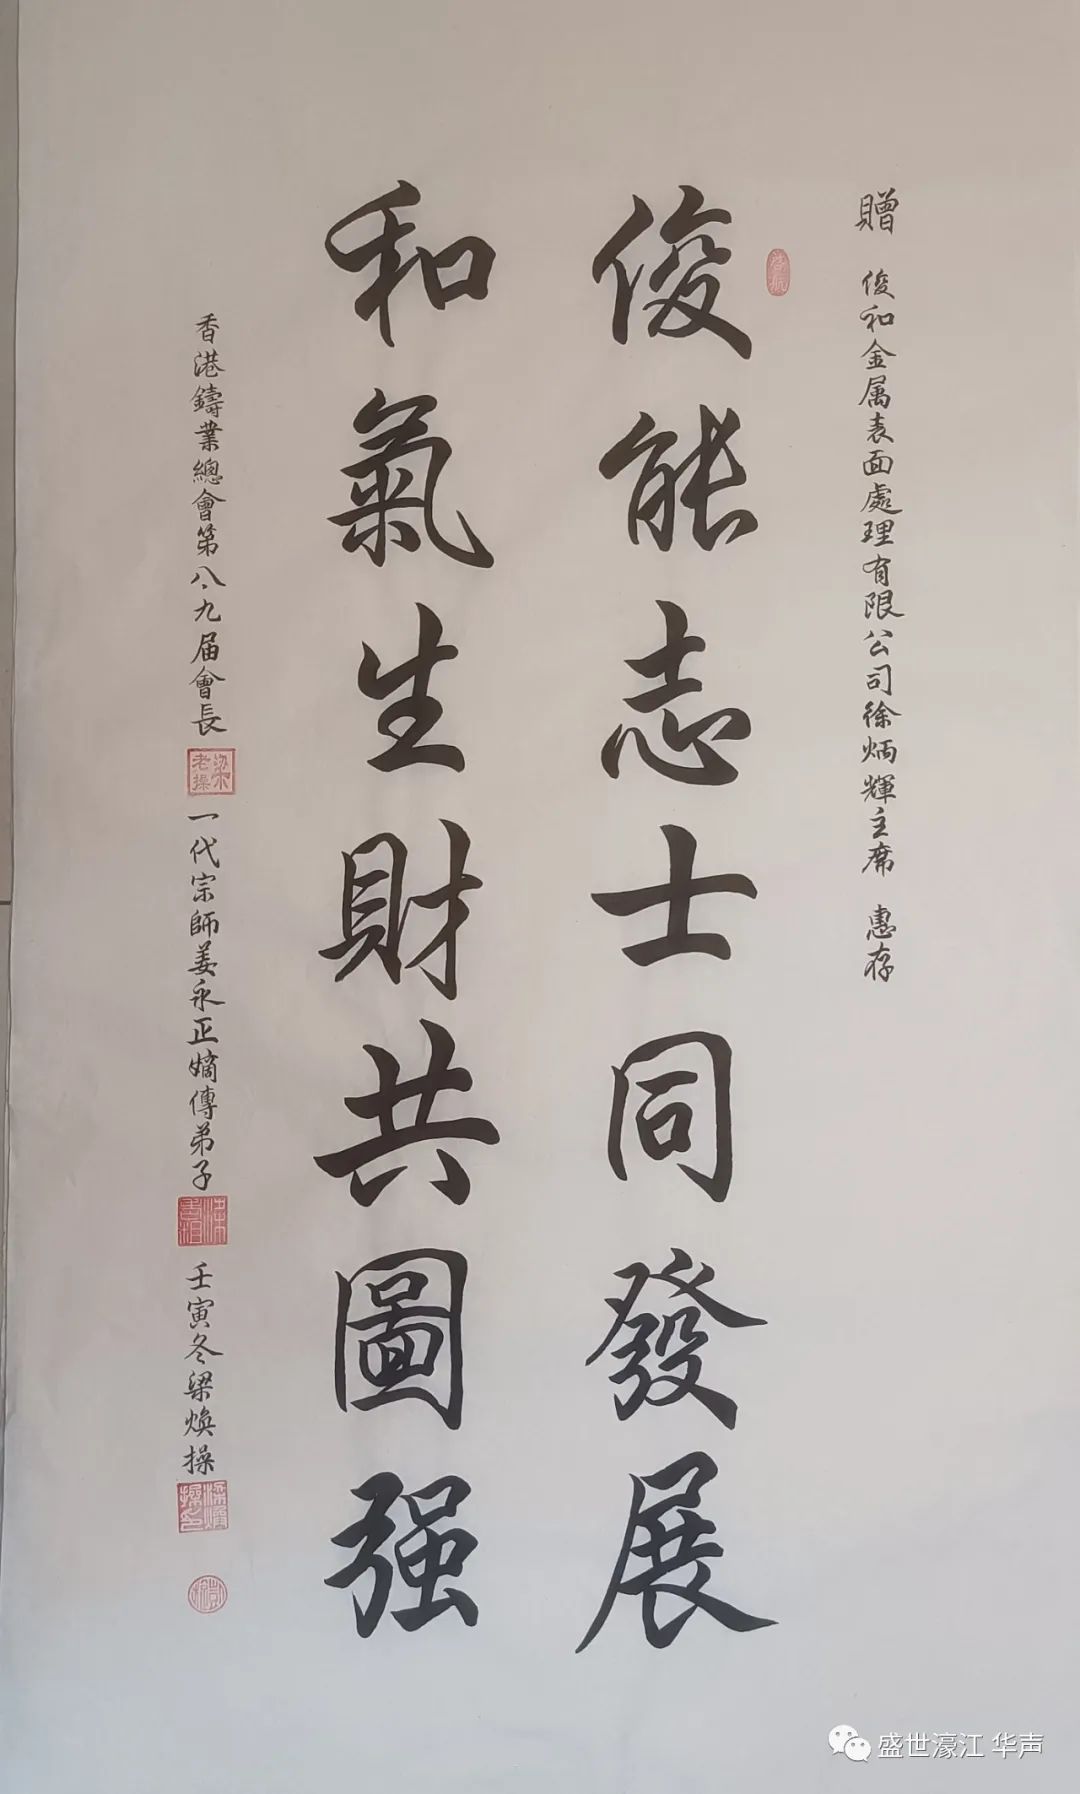 贈 俊和金属表面處理有限公司徐炳輝主席 惠存
啓航
俊能志士同發展
和氣生財共圖强
香港鑄業總會第八、九届會長
梁老操
一代宗師姜永正嫡傳弟子
壬寅冬梁煥操
盛世濠江 华声